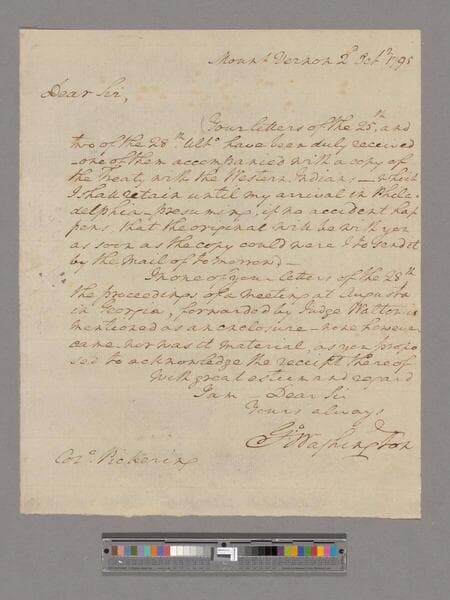 Mount Vernon 2d Octbr 1795
Dear Sir,
Your letters of the 25th and
two of the 28th Ulto have been duly received
—one of them accompanied with a copy of
the Treaty with the Western Indians—which
I shall retain until my arrival in Phila-
delphia—presuming, if no accident hap
pens, that the original will be with you
as soon as the copy could were I to send it
by the mail of tomorrow.—
In one of your letters of the 28th
the proceedings of a meeting at Augusta
in Georgia, forwarded by Judge Walton is
mentioned as an enclosure—none however
came—nor was it material, as you propo
sed to acknowledge the receipt thereof
With great esteem and regard
I am—Dear Sir
Yours always
Go Washington
Colo. Pickering